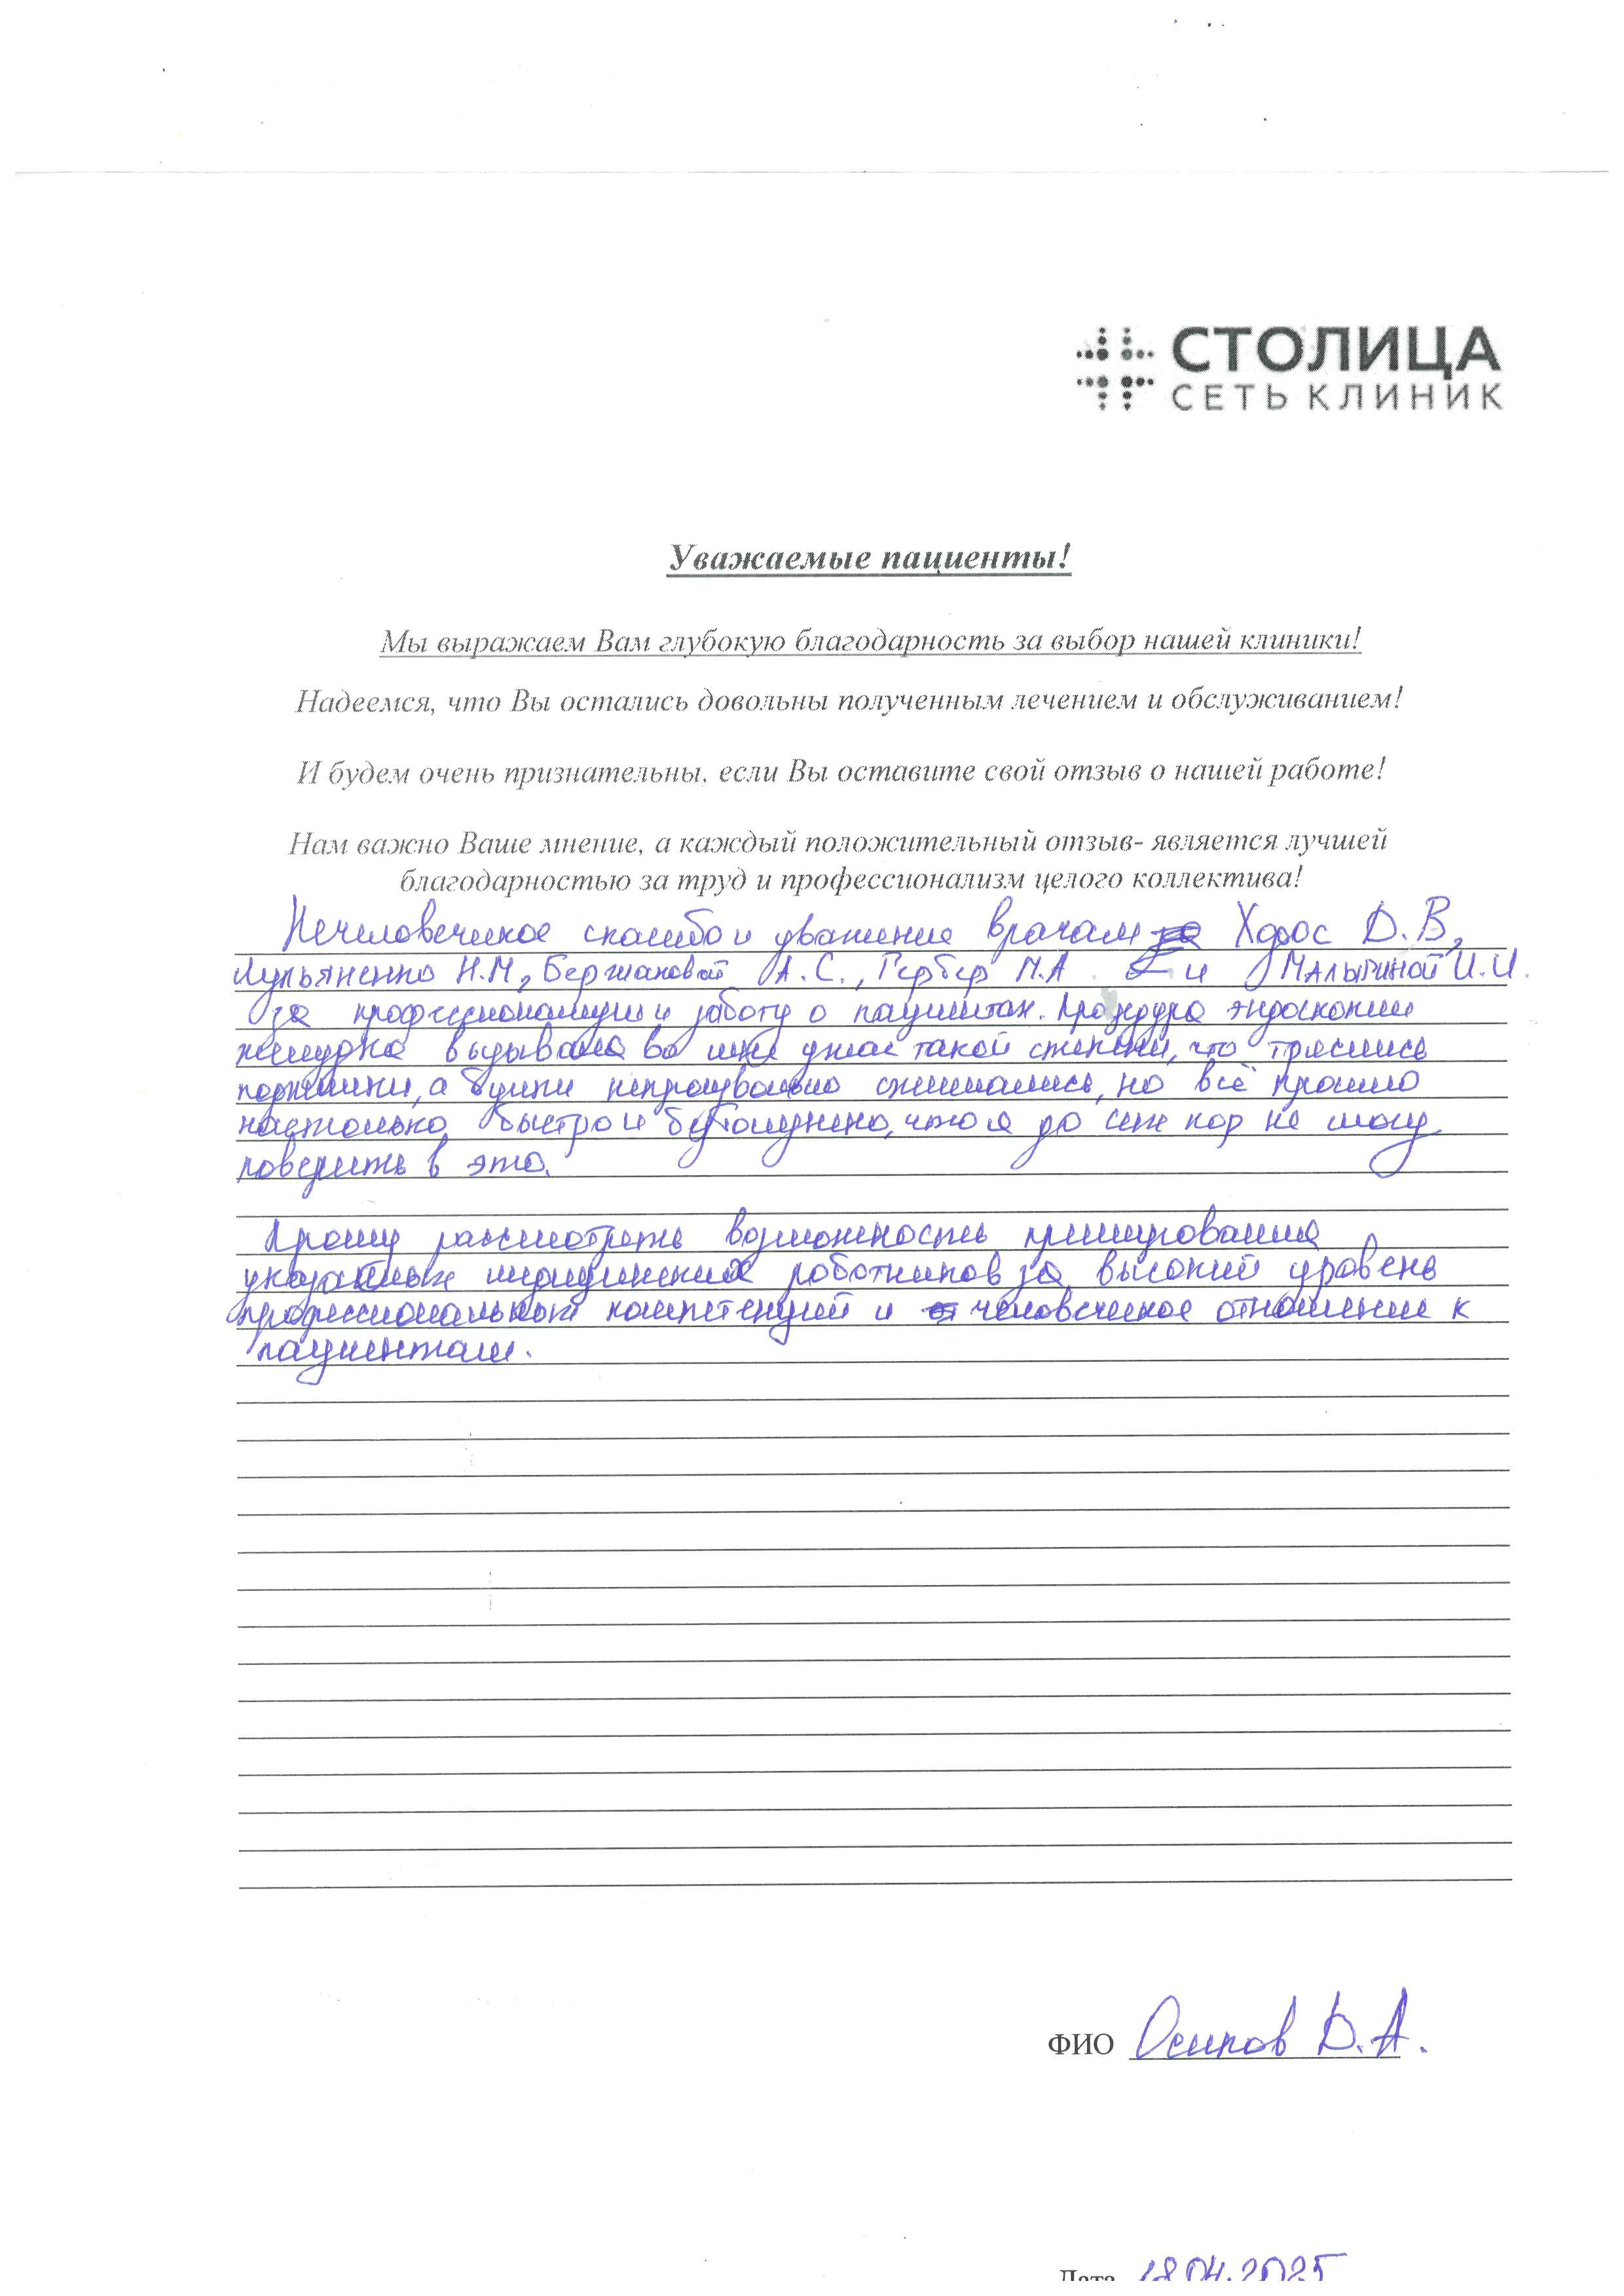 СТОЛИЦА
СЕТЬ КЛИНИК
Уважаемые пациенты!
Мы выражаем Вам глубокую благодарность за выбор нашей клиники!
Надеемся, что Вы остались довольны полученным лечением и обслуживанием!
И будем очень признательны, если Вы оставите свой отзыв о нашей работе!
Нам важно Ваше мнение, а каждый положительный отзыв- является лучшей
благодарностью за труд и профессионализм целого коллектива!
Нечеловеческое спасибо и уважение врачам Хорос Д.В,
Лукьяненко Н.М, Бержановой А.С., Гербер М.А и МАЛЫГИНОЙ И.И.
за профессионализм и заботу о пациентах. Процедура эндоскопии
желудка вызывала во мне ужас такой степени, что тряслись
поджилки, а булки непроизвольно сжимались, но всё прошло
настолько быстро и безболезненно, что я до сих пор не могу
поверить в это.
Прошу рассмотреть возможность премирования
указанных медицинских работников за высокий уровень
профессиональных компетенций и человеческое отношение к
пациентам.
ФИО Осипов Д.А.
Дата 18.04.2025